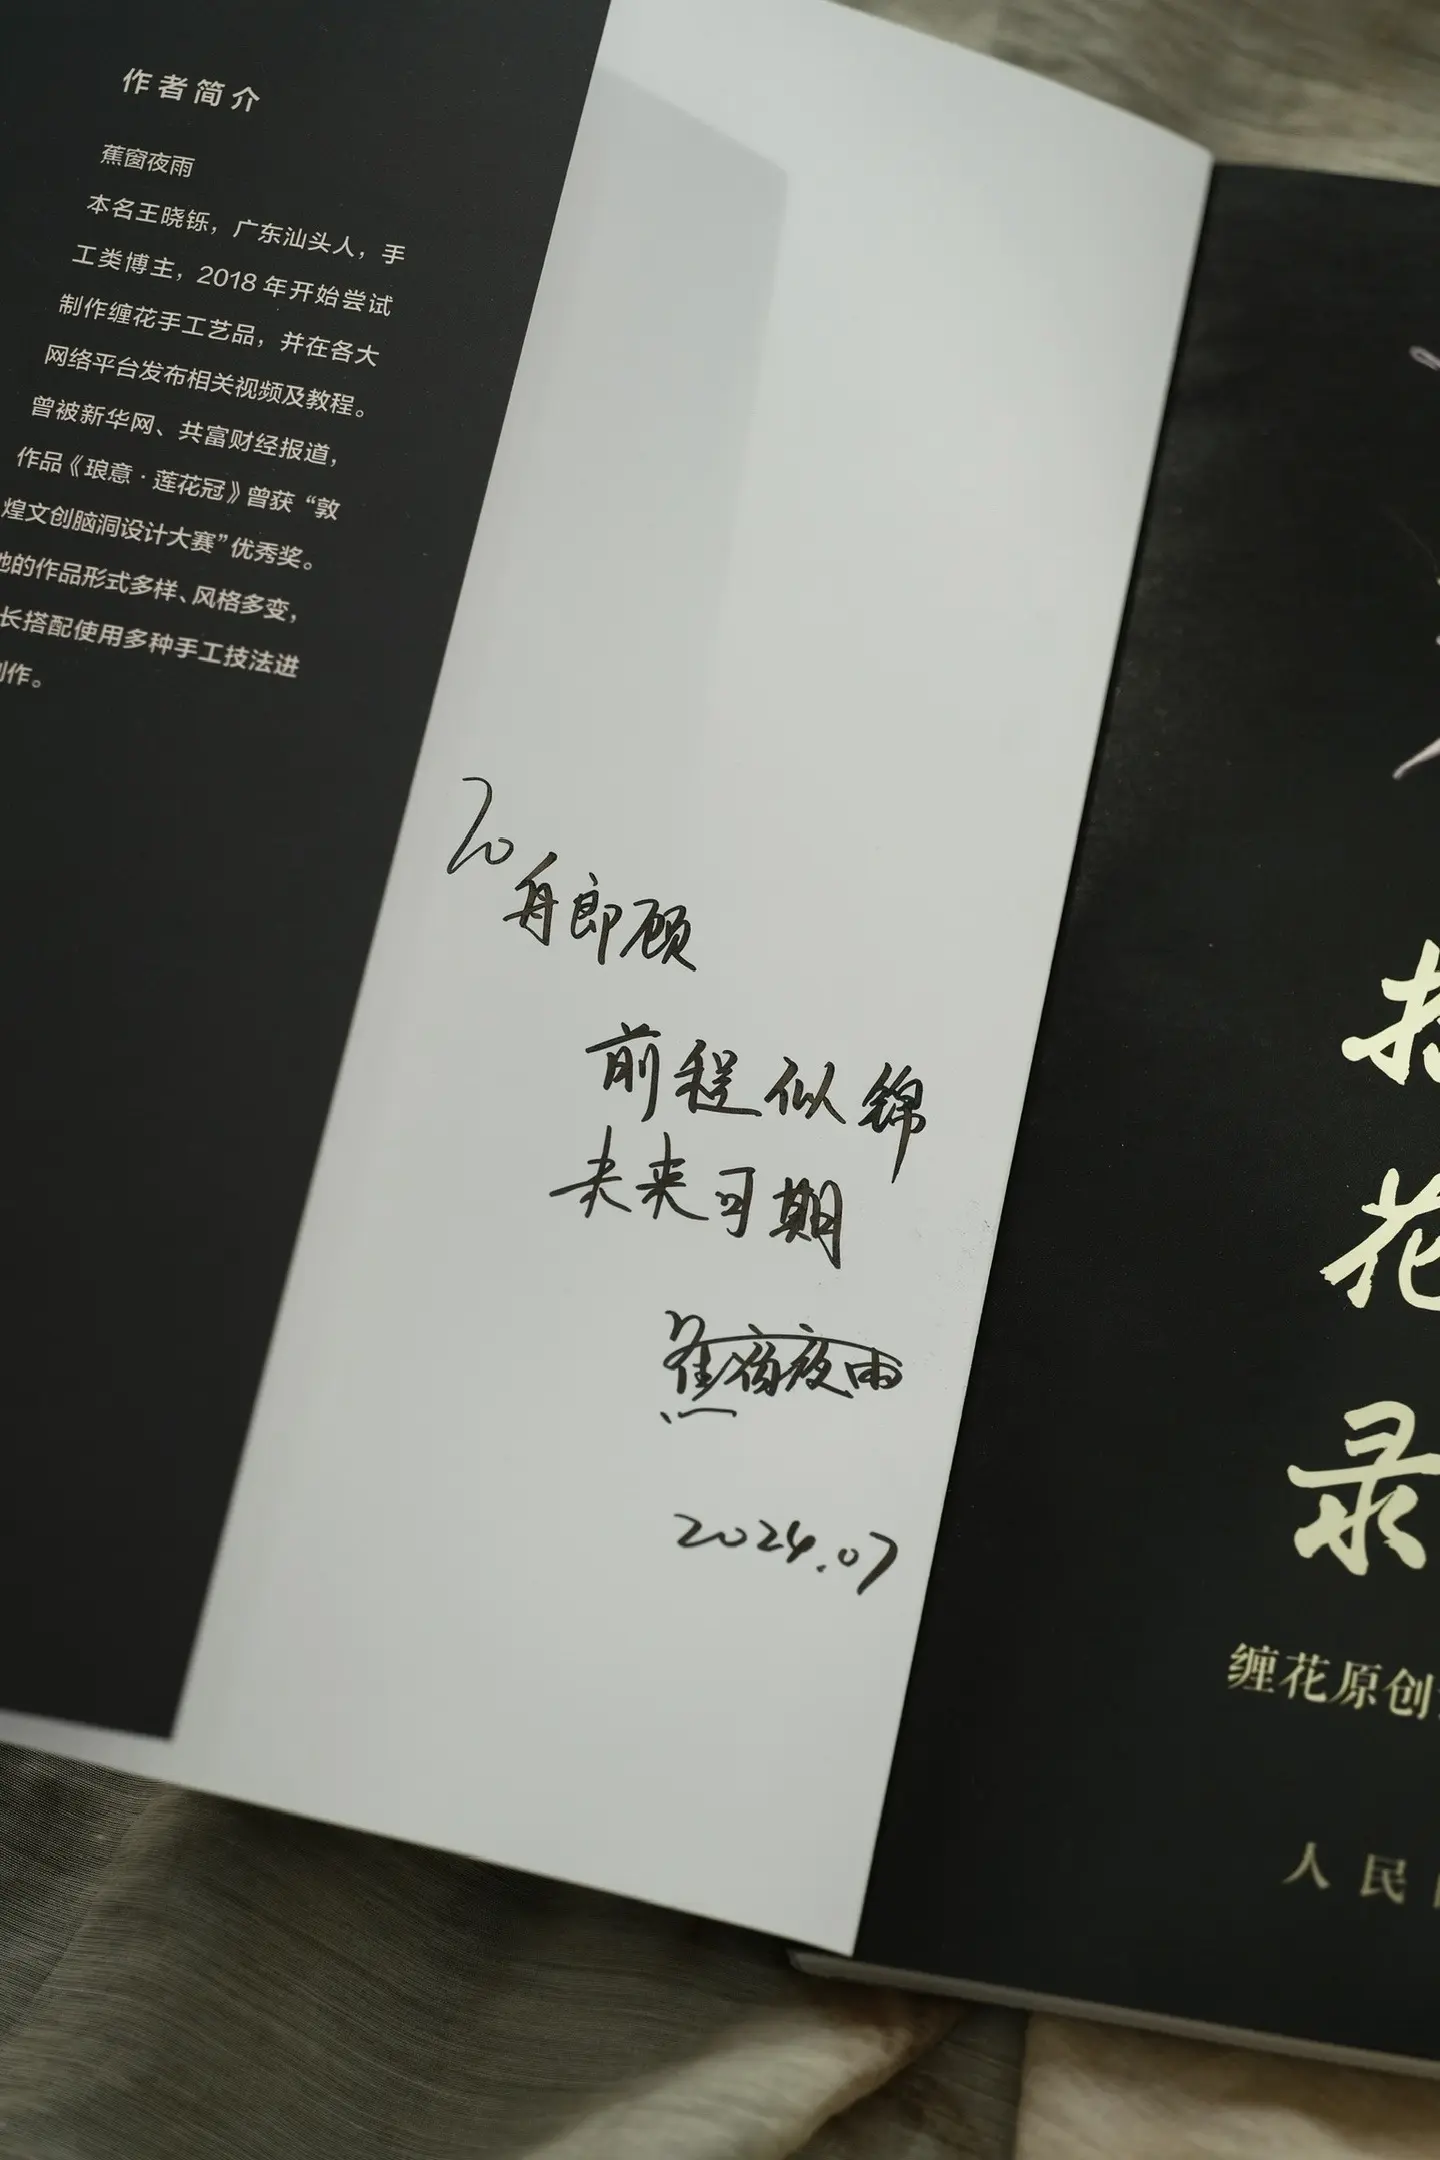 作者简介
蕉窗夜雨
本名王晓铄，广东汕头人，手
工类博主，2018年开始尝试
制作缠花手工艺品，并在各大
网络平台发布相关视频及教程。
曾被新华网、共富财经报道，
作品《琅意·莲花冠》曾获“敦
煌文创脑洞设计大赛”优秀奖。
的作品形式多样、风格多变，
长搭配使用多种手工技法进
创作。
To
舟郎顾
前程似锦
未来可期
蕉窗夜雨
2024.07
花
录
缠花原创
人民